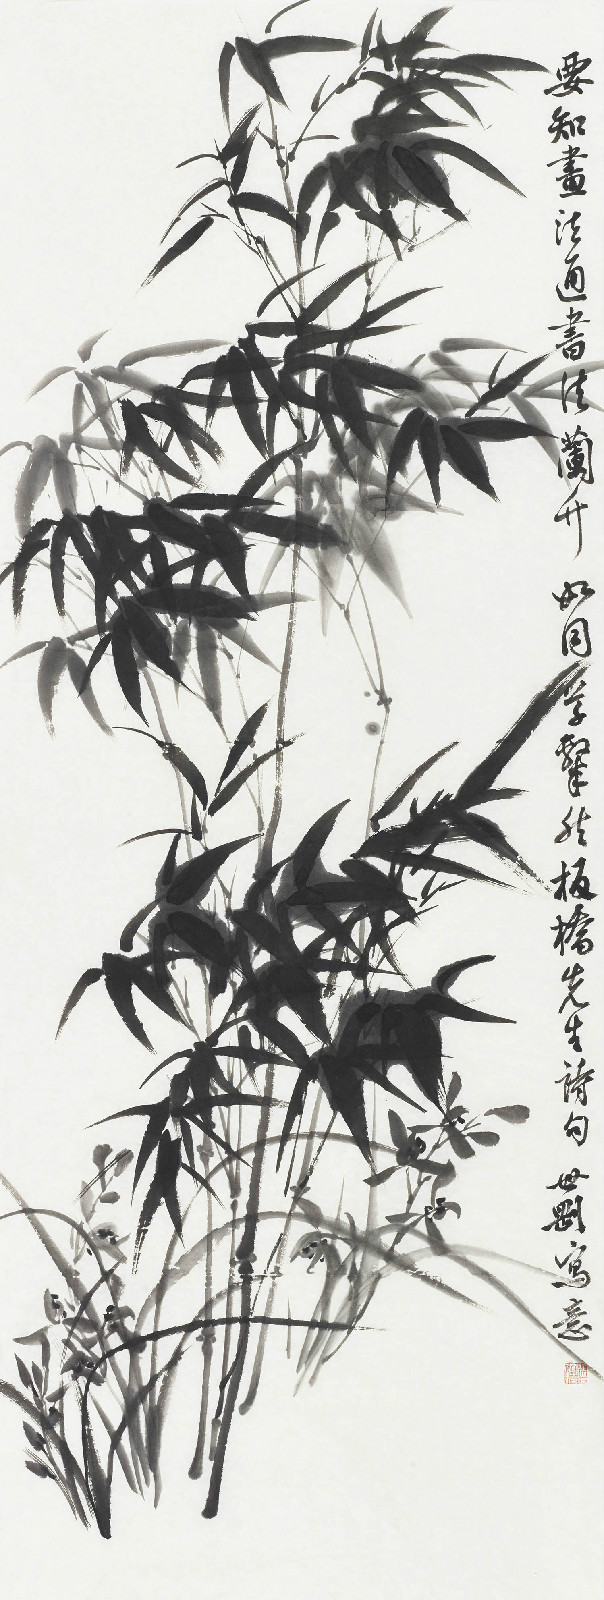 要知畫法通書法蘭竹如同草隸然板橋先生詩句世剛寫意